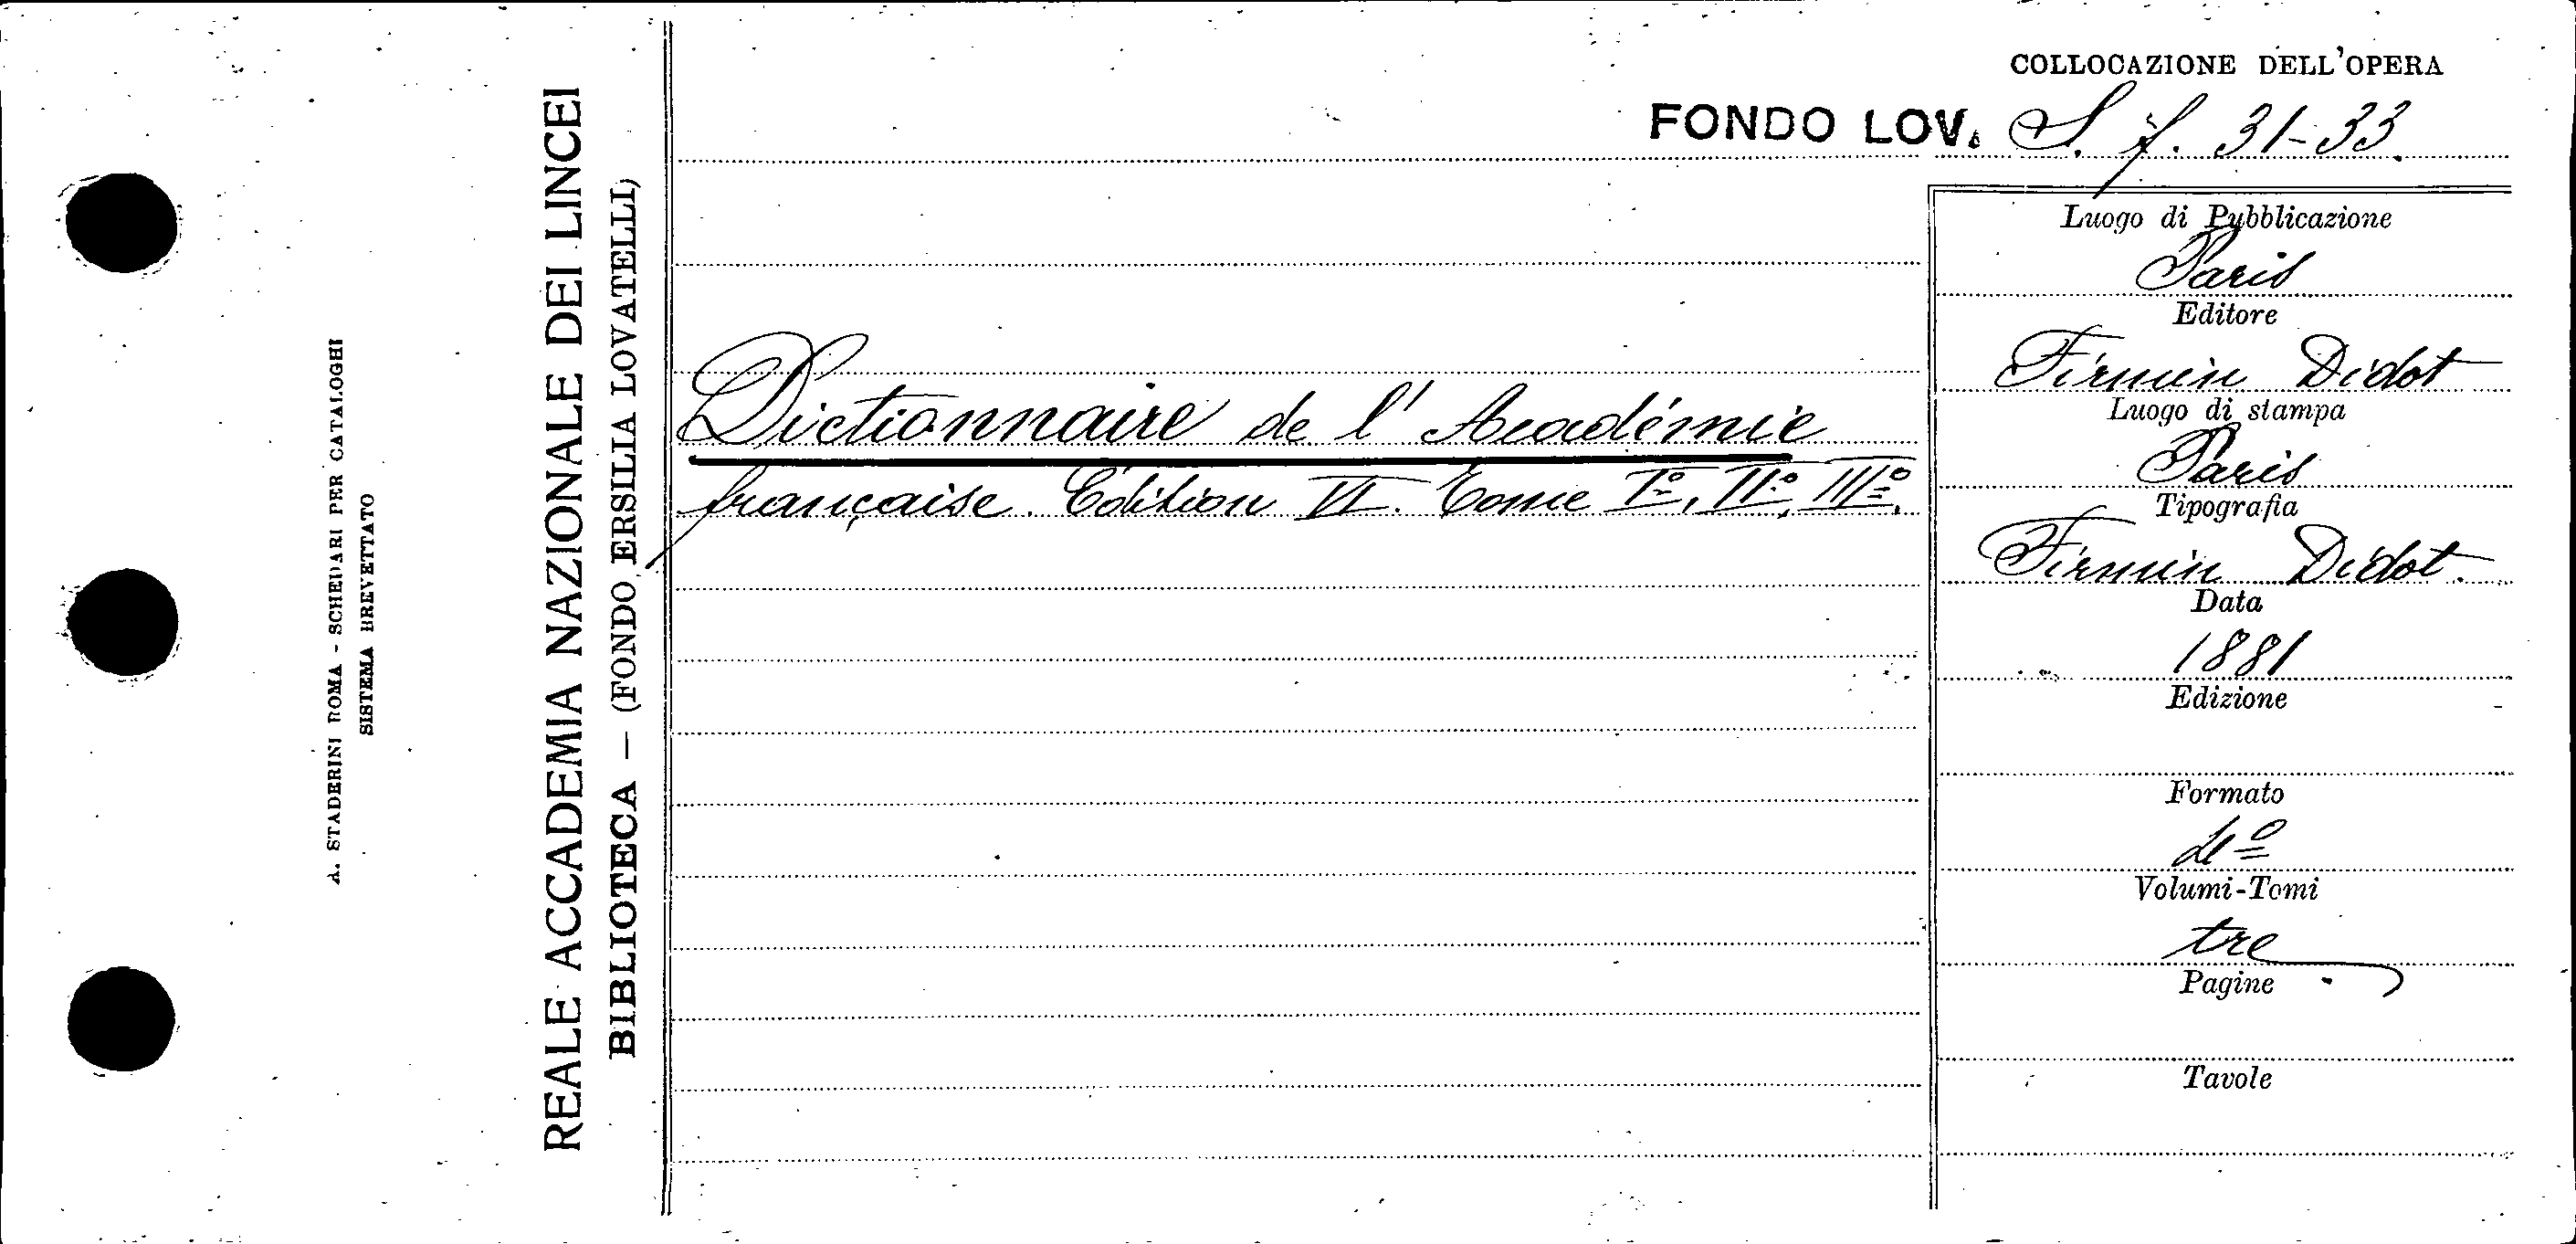 A. STADERINI ROMA - SCHEDARI PER CATALOGHI
SISTEMA BREVETTATO
REALE ACCADEMIA NAZIONALE DEI LINCEI
BIBLIOTECA — (FONDO ERSILIA LOVATELLI)
COLLOCAZIONE DELL'OPERA
FONDO LOV. S. f. 31-33.
Dictionnaire de l'Académie
française. Édition VI. Tome Iº, IIº, IIIº.
Luogo di Pubblicazione
Paris
Editore
Firmin Didot
Luogo di stampa
Paris
Tipografia
Firmin Didot.
Data
1881
Edizione
Formato
4º
Volumi-Tomi
tre
Pagine
Tavole